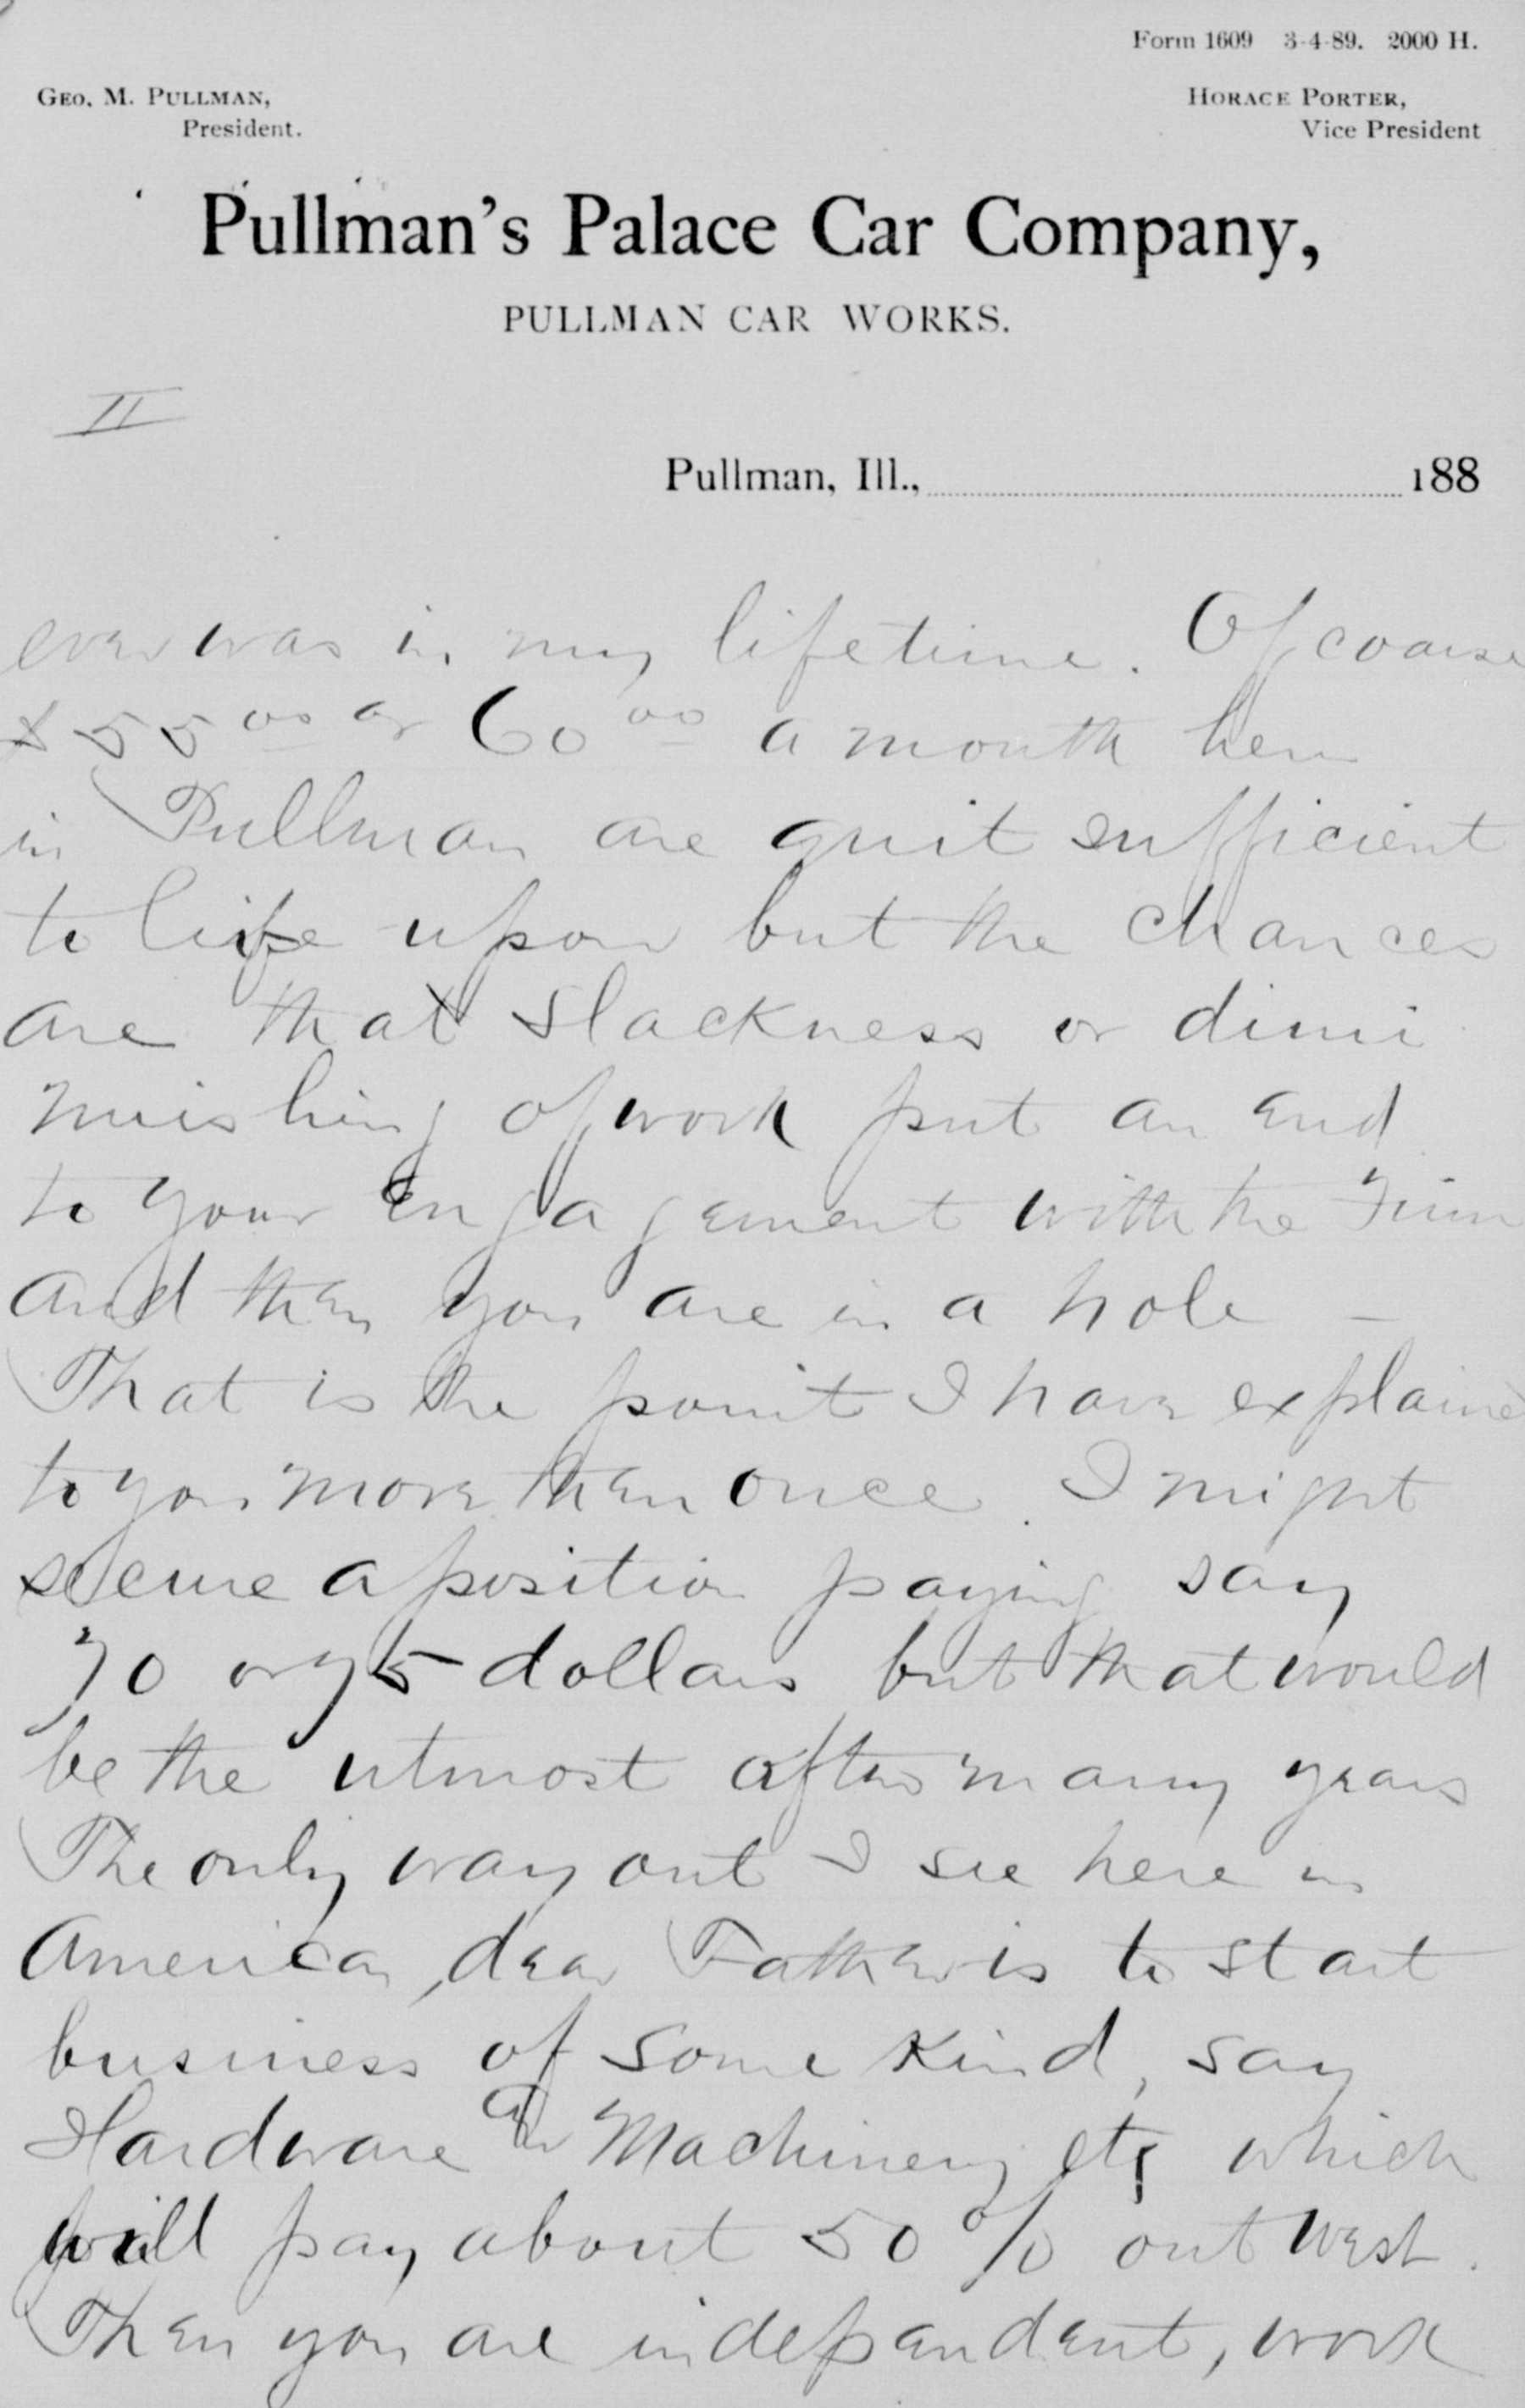 Form 1609 3-4-89. 2000 H.
GEO. M. PULLMAN, HORACE PORTER,
President. Vice President
Pullman's Palace Car Company,
PULLMAN CAR WORKS.
II
Pullman, Ill., 188
ever was in my lifetime. Of coarse
$ 55 00 or 60 00 a month here
in Pullman are quit sufficient
to life upon but the chances
are that slackness or dimi
nuishing of work put an end
to your engagement with the Firm
and then you are in a hole –
That is the point I have explained
to you more then once. I might
secure a position paying say
70 or 75 dollars but that would
be the utmost after many years
The only way out I see here in
America, dear Father is to start
business of some kind, say
Hardware or Machinery etc which
will pay about 50 % out west.
Then you are independent, work